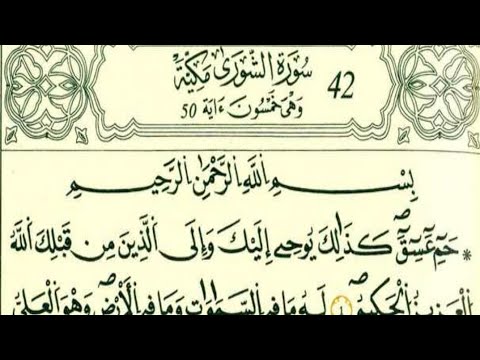 سُورَةُ الشُّورَىٰ مَكِّيَّةٌ 42
وَهْىَ خَمْسُونَ ءَايَةً 50
بِسْمِ اِللَّهِ اِلرَّحْمَٰنِ اِلرَّحِيمِ
* حَمِٓ عَٓسِٓقَٓ كَذَٰلِكَ يُوحِےٓ إِلَيْكَ وَإِلَى اَلذِينَ مِن قَبْلِكَ اَللَّهُ
اُلْعَزِيزُ اُلْحَكِيمُ 1 لَهُۥ مَا فِے اِلسَّمَٰوَٰتِ وَمَا فِے اِلْأَرْضِ وَهُوَ اَلْعَلِىُّ